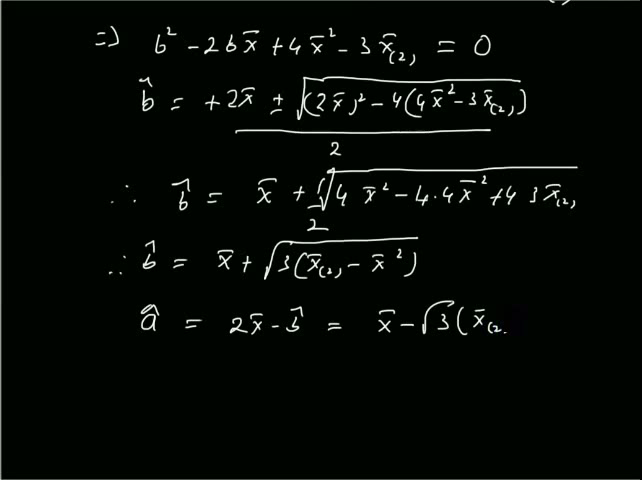 => b² - 2bx̄ + 4x̄² - 3x̄₍₂₎ = 0
b̂ = +2x̄ ± √((2x̄)² - 4(4x̄² - 3x̄₍₂₎)) / 2
∴ b̂ = x̄ + 1/2 √(4x̄² - 4·4x̄² + 4 3x̄₍₂₎)
∴ b̂ = x̄ + √(3(x̄₍₂₎ - x̄²))
â = 2x̄ - b̂ = x̄ - √3(x̄₍₂